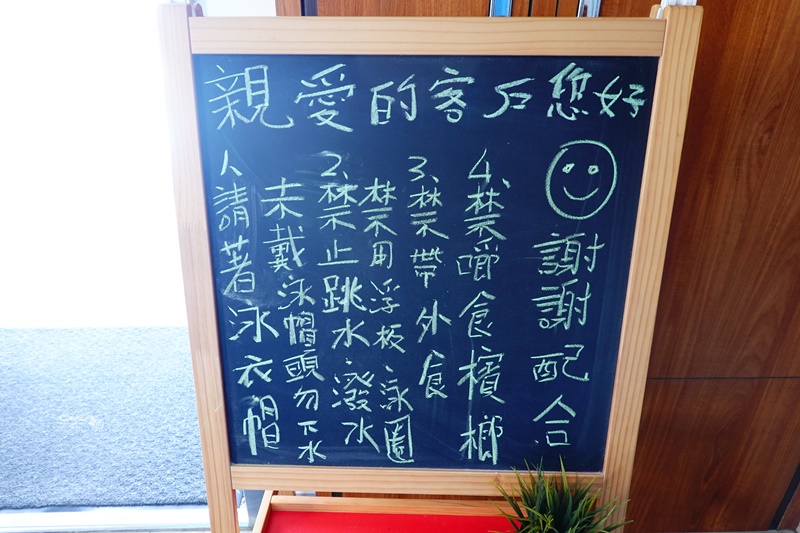 親愛的客戶您好
1、請著泳衣帽
未戴泳帽頭勿下水
2、禁止跳水、潑水
禁用浮板、泳圈
3、禁帶外食
4、禁嚼食檳榔
謝謝配合